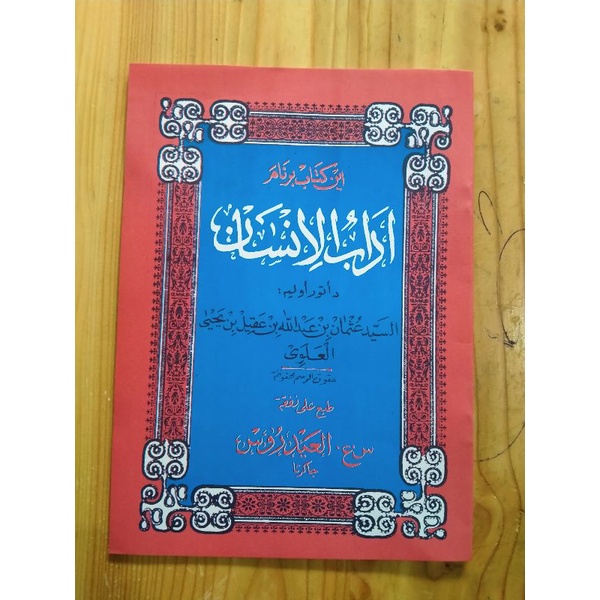 اين كتاب برنام
اداب الإنسان
دأتور أوليه:
السيد عثمان بن عبد الله بن عقيل بن يحيى
العلوي
حقوق الرسم محفوظة
طبع على نفقة
س.ع. العيدروس
جاكرتا